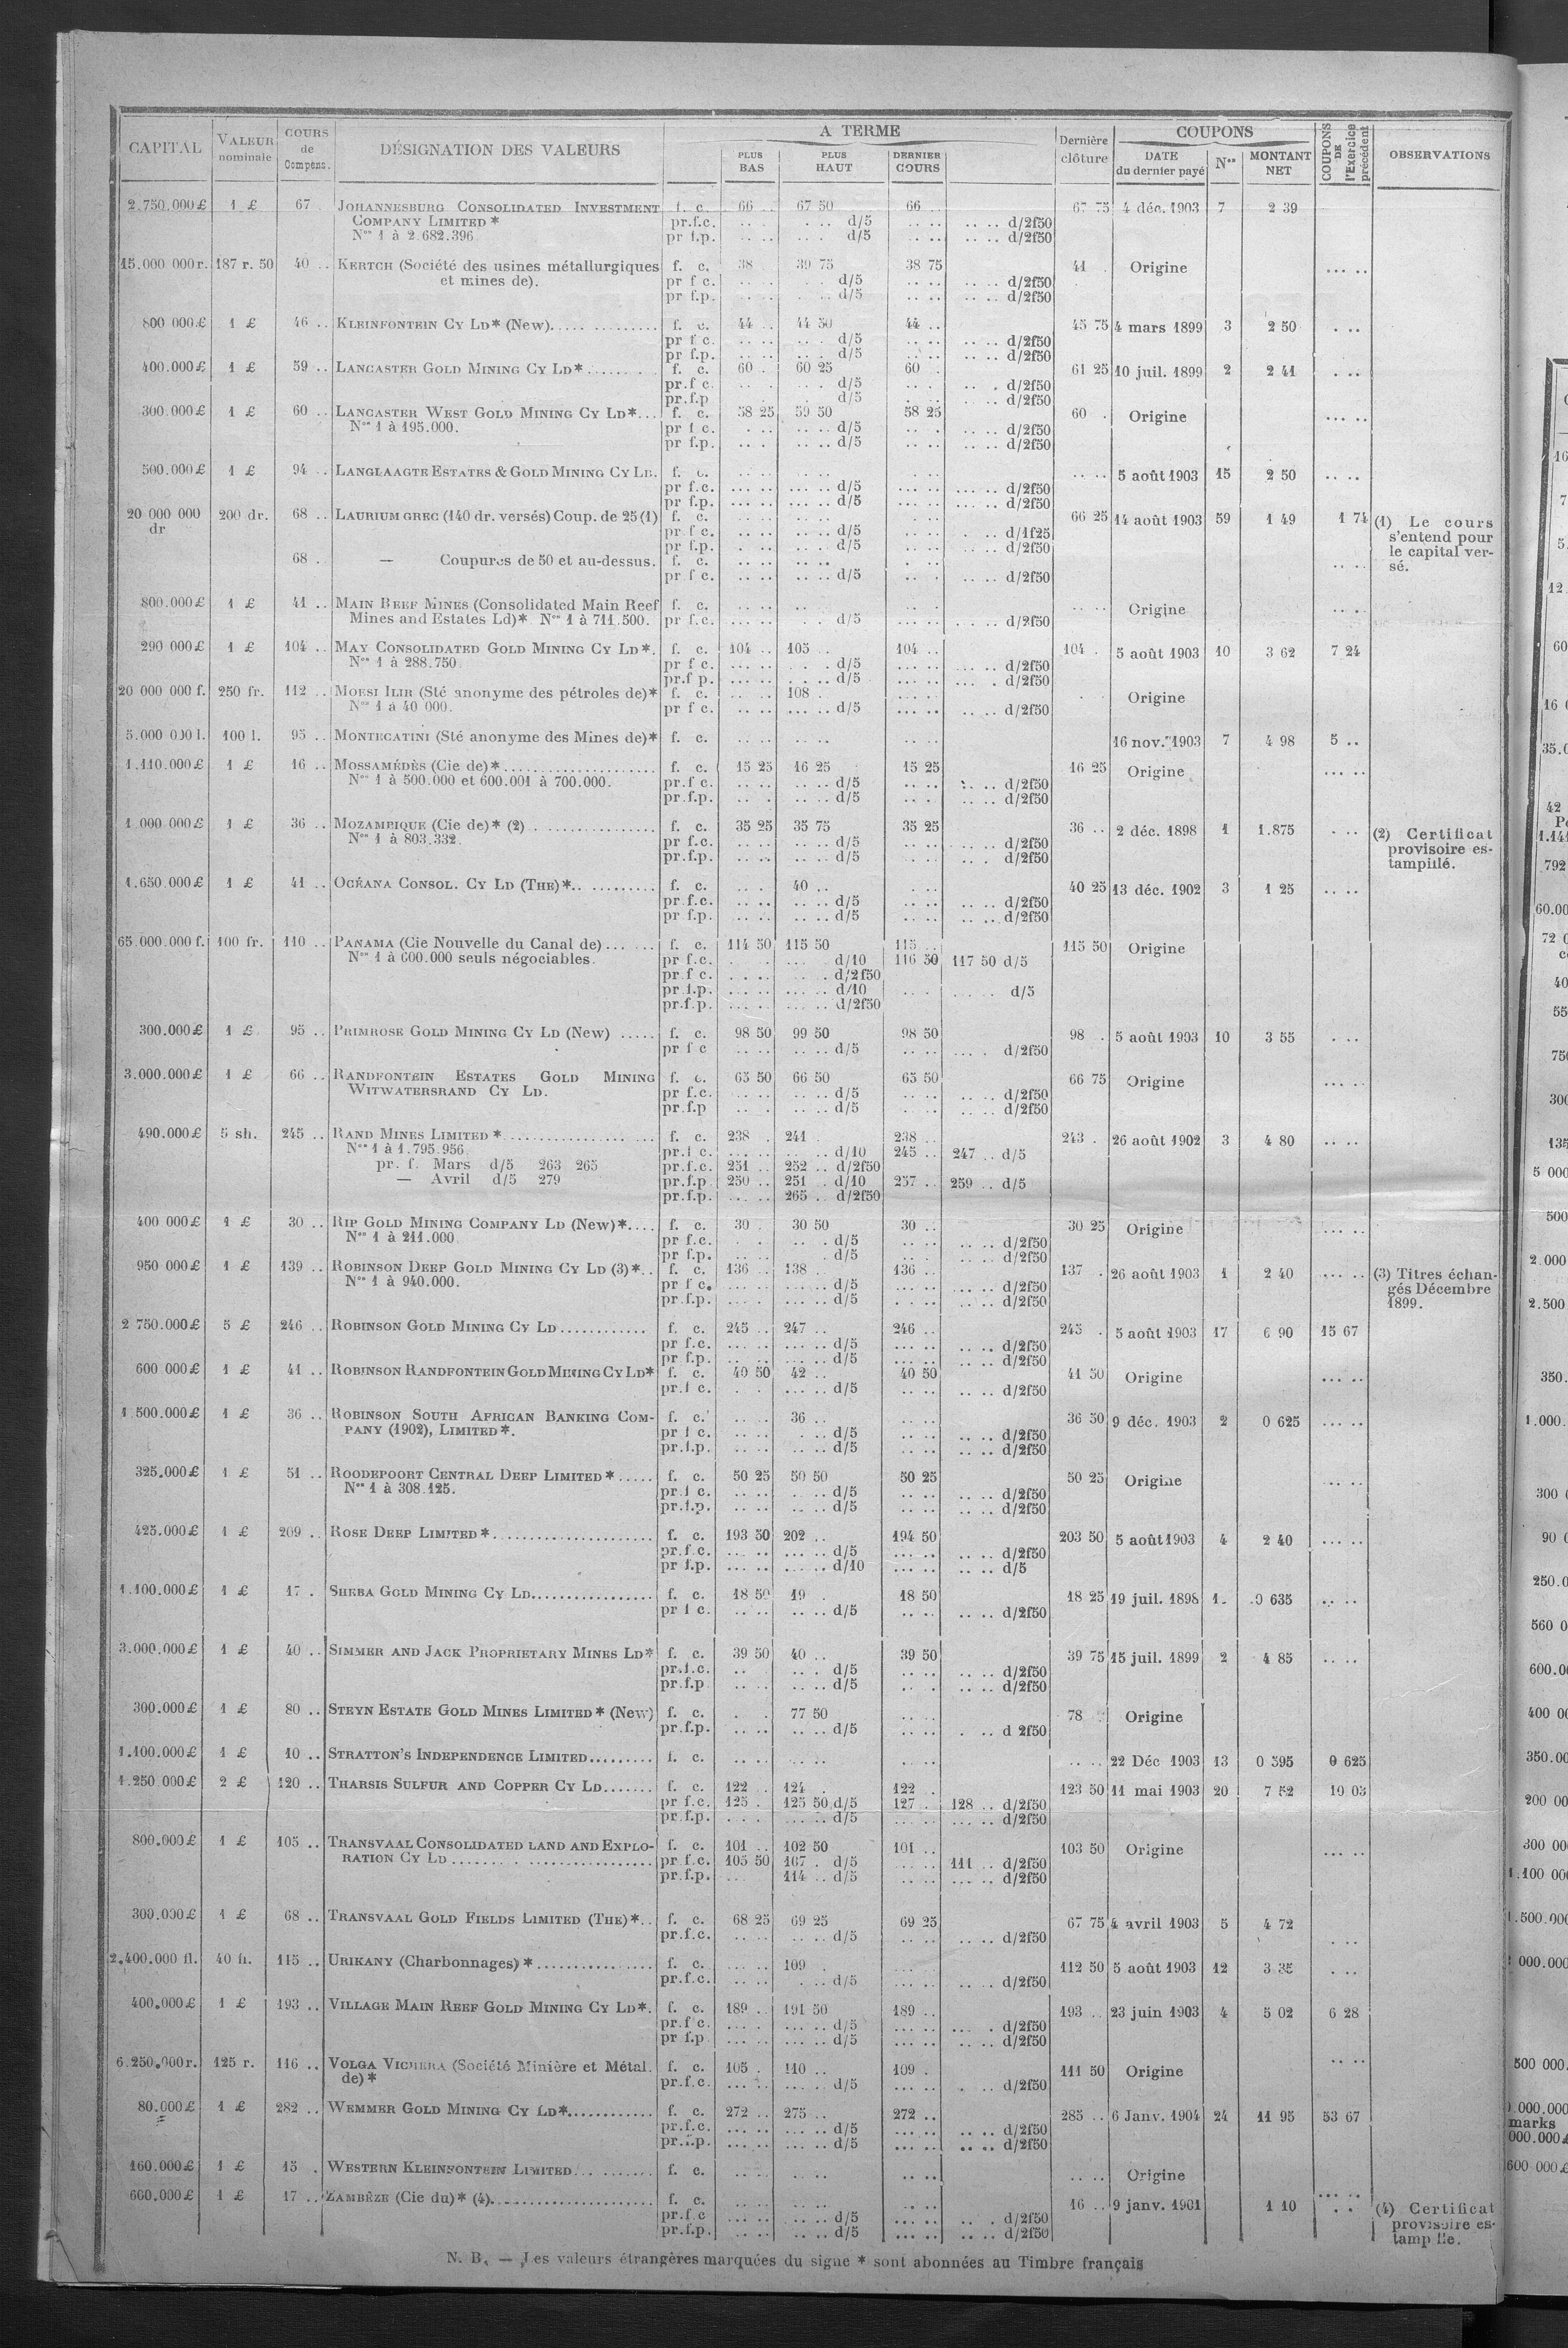 CAPITAL VALEUR nominale COURS de Compens. DÉSIGNATION DES VALEURS A TERME PLUS BAS PLUS HAUT DERNIER COURS Dernière clôture COUPONS DATE du dernier payé Nos MONTANT NET COUPONS DE l'Exercice précédent OBSERVATIONS
2.750.000£ 1 £ 67 JOHANNESBURG CONSOLIDATED INVESTMENT f. c. 66 67 50 66 67 75 4 déc. 1903 7 2 39
COMPANY LIMITED * pr.f.c. d/5 d/2f50
Nos 1 à 2.682.396 pr f.p. d/5 d/2f50
15.000 000r. 187 r. 50 40 .. KERTCH (Société des usines métallurgiques f. c. 38 39 75 38 75 41 Origine
et mines de). pr f c. d/5 d/2f50
pr f.p. d/5 d/2f50
800 000£ 1 £ 46 .. KLEINFONTEIN CY LD* (New) f. c. 44 .. 44 50 44 .. 45 75 4 mars 1899 3 2 50
pr f c. d/5 d/2f50
pr f.p. d/5 d/2f50
400.000£ 1 £ 59 .. LANCASTER GOLD MINING CY LD* f. c. 60 60 25 60 61 25 10 juil. 1899 2 2 41
pr.f c. d/5 d/2f50
pr.f.p d/5 d/2f50
300.000£ 1 £ 60 .. LANCASTER WEST GOLD MINING CY LD* f. c. 58 25 59 50 58 25 60 Origine
Nos 1 à 195.000. pr f c. d/5 d/2f50
pr f.p. d/5 d/2f50
500.000£ 1 £ 94 .. LANGLAAGTE ESTATES & GOLD MINING CY LD. f. c. 5 août 1903 15 2 50
pr f.c. d/5 d/2f50
pr f.p. d/5 d/2f50
20 000 000 dr 200 dr. 68 .. LAURIUM GREC (140 dr. versés) Coup. de 25 (1) f. c. 66 25 14 août 1903 59 1 49 1 74 (1) Le cours s'entend pour le capital versé.
pr.f c. d/5 d/1f25
pr f.p. d/5 d/2f50
68 — Coupures de 50 et au-dessus. f. c.
pr f c. d/5 d/2f50
800.000£ 1 £ 41 .. MAIN REEF MINES (Consolidated Main Reef f. c. Origine
Mines and Estates Ld)* Nos 1 à 711.500. pr f.c. d/5 d/2f50
290 000£ 1 £ 104 .. MAY CONSOLIDATED GOLD MINING CY LD*. f. c. 104 .. 105 .. 104 .. 104 5 août 1903 10 3 62 7 24
Nos 1 à 288.750 pr f c. d/5 d/2f50
pr.f p. d/5 d/2f50
20 000 000 f. 250 fr. 112 .. MORSI ILIR (Sté anonyme des pétroles de)* f. c. 108 Origine
Nos 1 à 40 000. pr f c. d/5 d/2f50
5.000 000 l. 100 l. 95 .. MONTECATINI (Sté anonyme des Mines de)* f. c. 16 nov. 1903 7 4 98 5 ..
1.110.000£ 1 £ 16 .. MOSSAMÉDÈS (Cie de)* f. c. 15 25 16 25 15 25 16 25 Origine
Nos 1 à 500.000 et 600.001 à 700.000. pr.f c. d/5 d/2f50
pr.f.p. d/5 d/2f50
1 000 000£ 1 £ 36 .. MOZAMBIQUE (Cie de)* (2) f. c. 35 25 35 75 35 25 36 .. 2 déc. 1898 1 1.875 (2) Certificat provisoire estampillé.
Nos 1 à 803.332. pr f.c. d/5 d/2f50
pr.f.p. d/5 d/2f50
1.650.000£ 1 £ 41 .. OCÉANA CONSOL. CY LD (THE)* f. c. 40 .. 40 25 13 déc. 1902 3 1 25
pr f.c. d/5 d/2f50
pr f.p. d/5 d/2f50
65.000.000 f. 100 fr. 110 .. PANAMA (Cie Nouvelle du Canal de) f. c. 114 50 115 50 115 115 50 Origine
Nos 1 à 600.000 seuls négociables. pr f.c. d/10 116 50 117 50 d/5
pr f c. d/2f50
pr f.p. d/10 d/5
pr.f.p. d/2f50
300.000£ 1 £ 95 .. PRIMROSE GOLD MINING CY LD (New) f. c. 98 50 99 50 98 50 98 5 août 1903 10 3 55
pr f c d/5 d/2f50
3.000.000£ 1 £ 66 .. RANDFONTEIN ESTATES GOLD MINING f. c. 65 50 66 50 65 50 66 75 Origine
WITWATERSRAND CY LD. pr f.c. d/5 d/2f50
pr.f.p d/5 d/2f50
490.000£ 5 sh. 245 .. RAND MINES LIMITED * f. c. 238 241 238 .. 243 26 août 1902 3 4 80
Nos 1 à 1.795.956 pr.f c. d/10 245 .. 247 .. d/5
pr. f. Mars d/5 263 265 pr.f.c. 251 .. 252 .. d/2f50
— Avril d/5 279 pr.f.p 250 .. 251 .. d/10 257 .. 259 .. d/5
pr.f.p. 265 .. d/2f50
400 000£ 1 £ 30 .. RIP GOLD MINING COMPANY LD (New)* f. c. 30 30 50 30 .. 30 25 Origine
Nos 1 à 211.000 pr f.c. d/5 d/2f50
pr f.p. d/5 d/2f50
950 000£ 1 £ 139 .. ROBINSON DEEP GOLD MINING CY LD (3)* f. c. 136 .. 138 136 .. 137 26 août 1903 1 2 40 (3) Titres échangés Décembre 1899.
Nos 1 à 940.000. pr f c. d/5 d/2f50
pr.f.p. d/5 d/2f50
2 750.000£ 5 £ 246 .. ROBINSON GOLD MINING CY LD f. c. 245 .. 247 .. 246 .. 245 5 août 1903 17 6 90 15 67
pr f.c. d/5 d/2f50
pr f.p. d/5 d/2f50
600 000£ 1 £ 41 .. ROBINSON RANDFONTEIN GOLD MINING CY LD* f. c. 40 50 42 .. 40 50 41 50 Origine
pr.f c. d/5 d/2f50
1 500.000£ 1 £ 36 .. ROBINSON SOUTH AFRICAN BANKING COM- f. c. 36 .. 36 50 9 déc. 1903 2 0 625
PANY (1902), LIMITED *. pr f c. d/5 d/2f50
pr.f.p. d/5 d/2f50
325.000£ 1 £ 51 .. ROODEPOORT CENTRAL DEEP LIMITED * f. c. 50 25 50 50 50 25 50 25 Origine
Nos 1 à 308.125. pr f c. d/5 d/2f50
pr.f.p. d/5 d/2f50
425.000£ 1 £ 209 .. ROSE DEEP LIMITED * f. c. 193 50 202 .. 194 50 203 50 5 août 1903 4 2 40
pr.f.c. d/5 d/2f50
pr f.p. d/10 d/5
1.100.000£ 1 £ 17 . SHEBA GOLD MINING CY LD f. c. 18 50 19 18 50 18 25 19 juil. 1898 1 0 635
pr f c. d/5 d/2f50
3.000.000£ 1 £ 40 .. SIMMER AND JACK PROPRIETARY MINES LD* f. c. 39 50 40 .. 39 50 39 75 15 juil. 1899 2 4 85
pr.f.c. d/5 d/2f50
pr.f.p d/5 d/2f50
300.000£ 1 £ 80 .. STEYN ESTATE GOLD MINES LIMITED * (New) f. c. 77 50 78 Origine
pr.f.p. d/5 d 2f50
1.100.000£ 1 £ 10 .. STRATTON'S INDEPENDENCE LIMITED f. c. 22 Déc 1903 13 0 595 0 625
1.250 000£ 2 £ 120 .. THARSIS SULFUR AND COPPER CY LD f. c. 122 124 122 123 50 11 mai 1903 20 7 52 10 03
pr f.c. 125 . 125 50 d/5 127 . 128 .. d/2f50
pr.f.p. d/5 d/2f50
800.000£ 1 £ 105 .. TRANSVAAL CONSOLIDATED LAND AND EXPLO- f. c. 101 .. 102 50 101 .. 103 50 Origine
RATION CY LD pr f.c. 105 50 107 . d/5 111 .. d/2f50
pr.f.p. 114 .. d/5 d/2f50
300.000£ 1 £ 68 .. TRANSVAAL GOLD FIELDS LIMITED (THE)* f. c. 68 25 69 25 69 25 67 75 4 avril 1903 5 4 72
pr.f.c. d/5 d/2f50
2.400.000 fl. 40 fl. 115 .. URIKANY (Charbonnages) * f. c. 109 112 50 5 août 1903 12 3 35
pr.f.c. d/5 d/2f50
400.000£ 1 £ 193 .. VILLAGE MAIN REEF GOLD MINING CY LD*. f. c. 189 .. 191 50 189 .. 193 .. 23 juin 1903 4 5 02 6 28
pr.f c. d/5 d/2f50
pr f.p d/5 d/2f50
6.250.000r. 125 r. 116 .. VOLGA VICHERA (Société Minière et Métal. f. c. 105 . 110 .. 109 . 111 50 Origine
de)* pr.f.c. d/5 d/2f50
80.000£ 1 £ 282 .. WEMMER GOLD MINING CY LD* f. c. 272 .. 275 .. 272 .. 285 .. 6 Janv. 1904 24 11 95 53 67
pr.f.c. d/5 d/2f50
pr.f.p. d/5 d/2f50
160.000£ 1 £ 15 . WESTERN KLEINFONTEIN LIMITED f. c. Origine
600.000£ 1 £ 17 .. ZAMBÈZE (Cie du)* (4) f. c. 16 .. 9 janv. 1901 1 10 (4) Certificat provisoire estampillé.
pr.f.c d/5 d/2f50
pr.f.p. d/5 d/2f50
N. B. — Les valeurs étrangères marquées du signe * sont abonnées au Timbre français